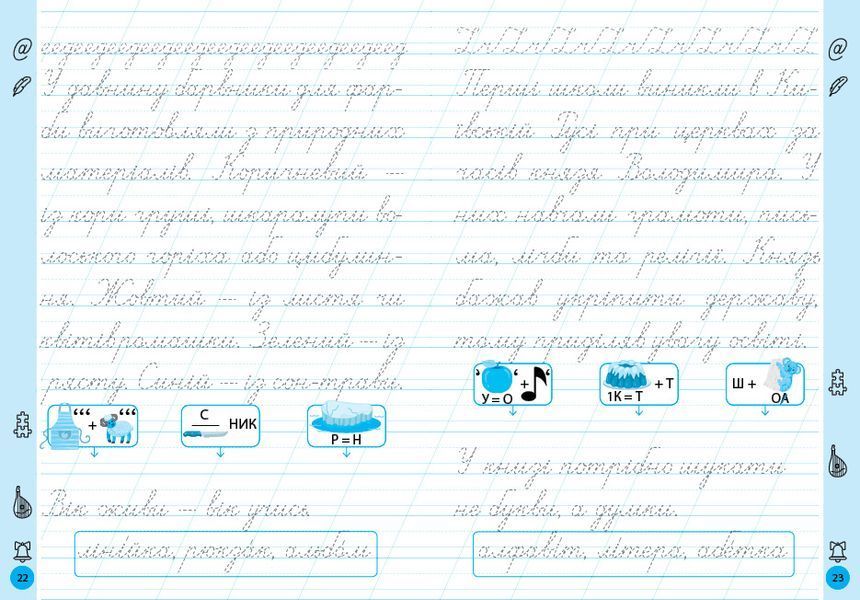 У давнину барвники для фар-
би виготовляли з природних
матеріалів. Коричневий —
із кори груші, шкаралупи во-
лоського горіха або цибулин-
ня. Жовтий — із листя чи
квітів ромашки. Зелений — із
рясту. Синій — із сон-трави.
‘‘‘ + ‘‘‘
С
НИК
Р = Н
Вік живи — вік учись.
лінійка, рюкзак, альбом
22
Перші школи виникли в Ки-
ївській Русі при церквах за
часів князя Володимира. У
них навчали грамоти, пись-
ма, лічби та релігії. Князь
бажав укріпити державу,
тому приділяв увагу освіті.
‘ + ‘
У = О
+ Т
1К = Т
Ш +
ОА
У книзі потрібно шукати
не букви, а думки.
алфавіт, літера, абетка
23